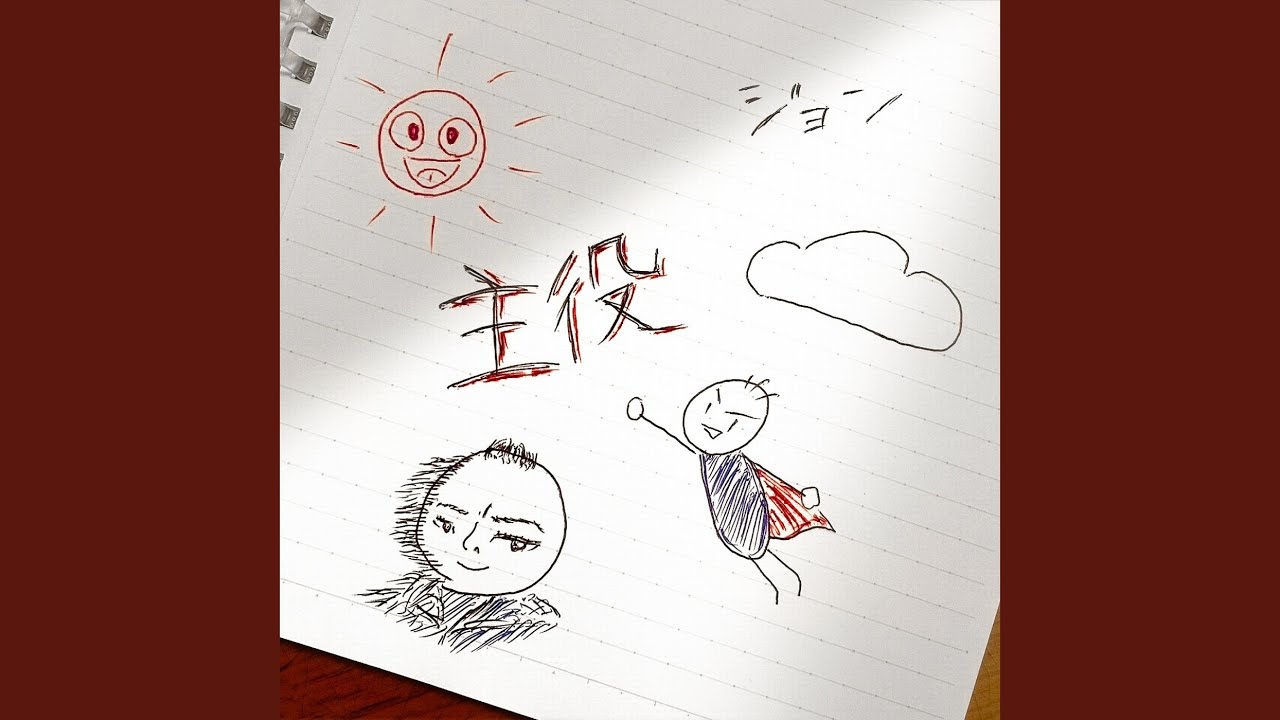 ジョン
主役